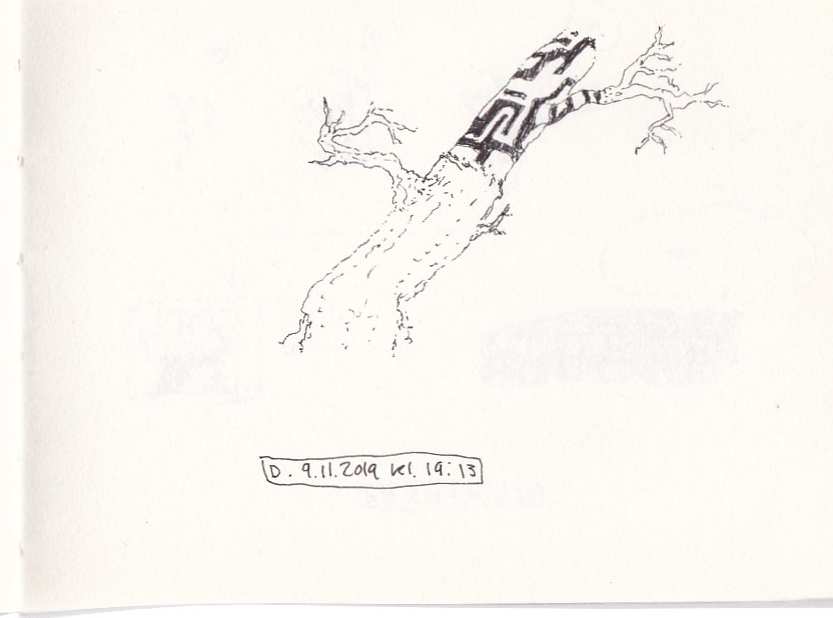 D. 9.11.2019 kl. 19:13